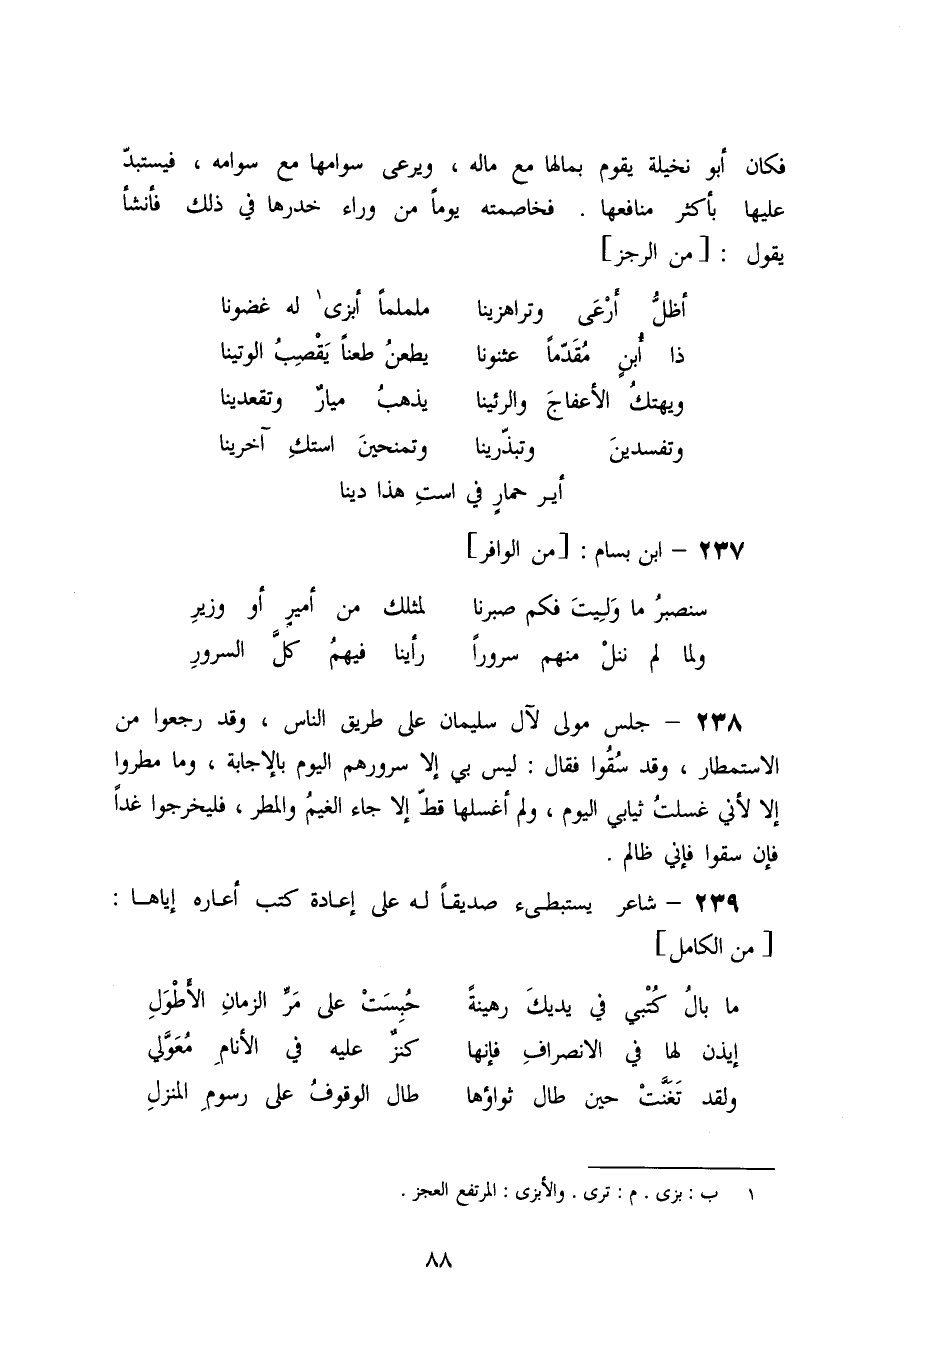 فكان أبو نخيلة يقوم بمالها مع ماله ، ويرعى سوامها مع سوامه ، فيستبدّ
عليها بأكثر منافعها . فخاصمته يوماً من وراء خدرها في ذلك فأنشأ
يقول : [ من الرجز ]
أظلُّ أَرْعَى وتراهزينا ململماً أبزى١ له غضونا
ذا أُبنٍ مُقَدّماً عثنونا يطعنُ طعناً يَقْصِبُ الوتينا
ويهتكُ الأعفاجَ والرئينا يذهبُ ميارٌ وتقعدينا
وتفسدينَ وتبذّرينا وتمنحينَ استكِ آخرينا
أير حمارٍ في استِ هذا دينا
٢٣٧ – ابن بسام : [من الوافر]
سنصبرُ ما وَلِيتَ فكم صبرنا لمثلك من أميرٍ أو وزيرِ
ولما لم ننلْ منهم سروراً رأينا فيهمُ كلَّ السرورِ
٢٣٨ – جلس مولى لآل سليمان على طريق الناس ، وقد رجعوا من
الاستمطار ، وقد سُقُوا فقال : ليس بي إلا سرورهم اليوم بالإجابة ، وما مطروا
إلا لأني غسلتُ ثيابي اليوم ، ولم أغسلها قطّ إلا جاء الغيمُ والمطر ، فليخرجوا غداً
فإن سقوا فإني ظالم .
٢٣٩ – شاعر يستبطىء صديقاً له على إعادة كتب أعاره إياها :
[ من الكامل ]
ما بالُ كُتْبي في يديكَ رهينةً حُبِسَتْ على مَرِّ الزمانِ الأَطْوَلِ
إيذن لها في الانصرافِ فإنها كنزٌ عليه في الأنامِ مُعَوَّلي
ولقد تَغَنَّتْ حين طال ثواؤها طال الوقوفُ على رسومِ المنزلِ
١ ب : بزى . م : ترى . والأبزى : المرتفع العجز .
٨٨